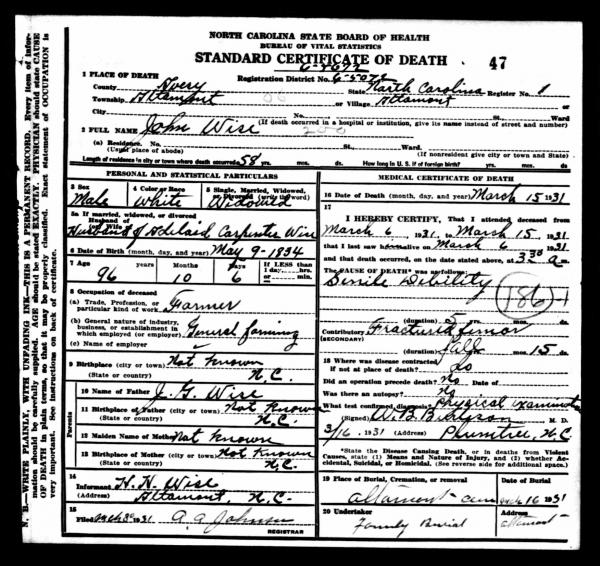 NORTH CAROLINA STATE BOARD OF HEALTH
BUREAU OF VITAL STATISTICS
STANDARD CERTIFICATE OF DEATH 47
1 PLACE OF DEATH
Registration District No. 6-5072
County Avery State North Carolina Register No. 1
Township Altamont or Village Altamont or
City No. St. Ward
(If death occurred in a hospital or institution, give its name instead of street and number)
2 FULL NAME John Wise 200
(a) Residence. No. St. Ward
(Usual place of abode) (If nonresident give city or town and State)
Length of residence in city or town where death occurred 58 yrs. mos. ds. How long in U. S. if of foreign birth? yrs. mos. ds.
PERSONAL AND STATISTICAL PARTICULARS
3 Sex 4 Color or Race 5 Single, Married, Widowed,
Divorced (write the word)
Male White Widowed
5a If married, widowed, or divorced
Husband of
(or) Wife of
Husband of Adelaid Carpenter Wise
6 Date of Birth (month, day, and year) May 9 - 1834
7 Age Years Months Days If LESS than
1 day, hrs.
or min.
96 10 6
8 Occupation of deceased
(a) Trade, Profession, or
particular kind of work Farmer
(b) General nature of industry,
business, or establishment in
which employed (or employer) General farming
(c) Name of employer
9 Birthplace (city or town) Not known
(State or country) N.C.
Parents
10 Name of Father J. G. Wise
11 Birthplace of Father (city or town) Not known
(State or country) N.C.
12 Maiden Name of Mother Not known
13 Birthplace of Mother (city or town) Not known
(State or country) N.C.
14
Informant H. N. Wise
(Address) Altamont, N.C.
15
Filed 1931 A. A. Johnson
REGISTRAR
MEDICAL CERTIFICATE OF DEATH
16 Date of Death (month, day, and year) March 15 1931
17
I HEREBY CERTIFY, That I attended deceased from
March 6, 1931, to March 15, 1931
that I last saw alive on March 6 1931
and that death occurred, on the date stated above, at 3 30 a m.
The CAUSE OF DEATH* was as follows:
Senile Debility
186
(duration) 5 yrs. mos. ds.
Contributory Fractured Femor
(SECONDARY)
(duration) mos. 15 ds.
18 Where was disease contracted
if not at place of death?
Did an operation precede death? No Date of
Was there an autopsy? No
What test confirmed diagnosis? Physical Examination
(Signed) W. B. Burleson M. D.
3/16, 1931 (Address) Plumtree, N.C.
*State the Disease Causing Death, or in deaths from Violent
Causes, state (1) Means and Nature of Injury, and (2) whether Ac-
cidental, Suicidal, or Homicidal. (See reverse side for additional space.)
19 Place of Burial, Cremation, or removal Date of Burial
Altamont Cem 16 1931
20 Undertaker Address
Family Burial Altamont
N. B.—WRITE PLAINLY, WITH UNFADING INK—THIS IS A PERMANENT RECORD. Every item of infor-
mation should be carefully supplied. AGE should be stated EXACTLY. PHYSICIAN should state CAUSE
OF DEATH in plain terms, so that it may be properly classified. Exact statement of OCCUPATION is
very important. See instructions on back of certificate.